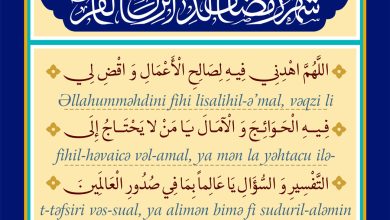 اللَّهُمَّ اهْدِنِي فِيهِ لِصَالِحِ الْأَعْمَالِ وَ اقْضِ لِي
Əllahumməhdini fihi lisalihil-ə'mal, vəqzi li
فِيهِ الْحَوَائِجَ وَ الْآمَالَ يَا مَنْ لَا يَحْتَاجُ إِلَى
fihil-həvaicə vəl-amal, ya mən la yəhtacu ilə-
التَّفْسِيرِ وَ السُّؤَالِ يَا عَالِماً بِمَا فِي صُدُورِ الْعَالَمِينَ
t-təfsiri vəs-sual, ya alimən bimə fi suduril-aləmin